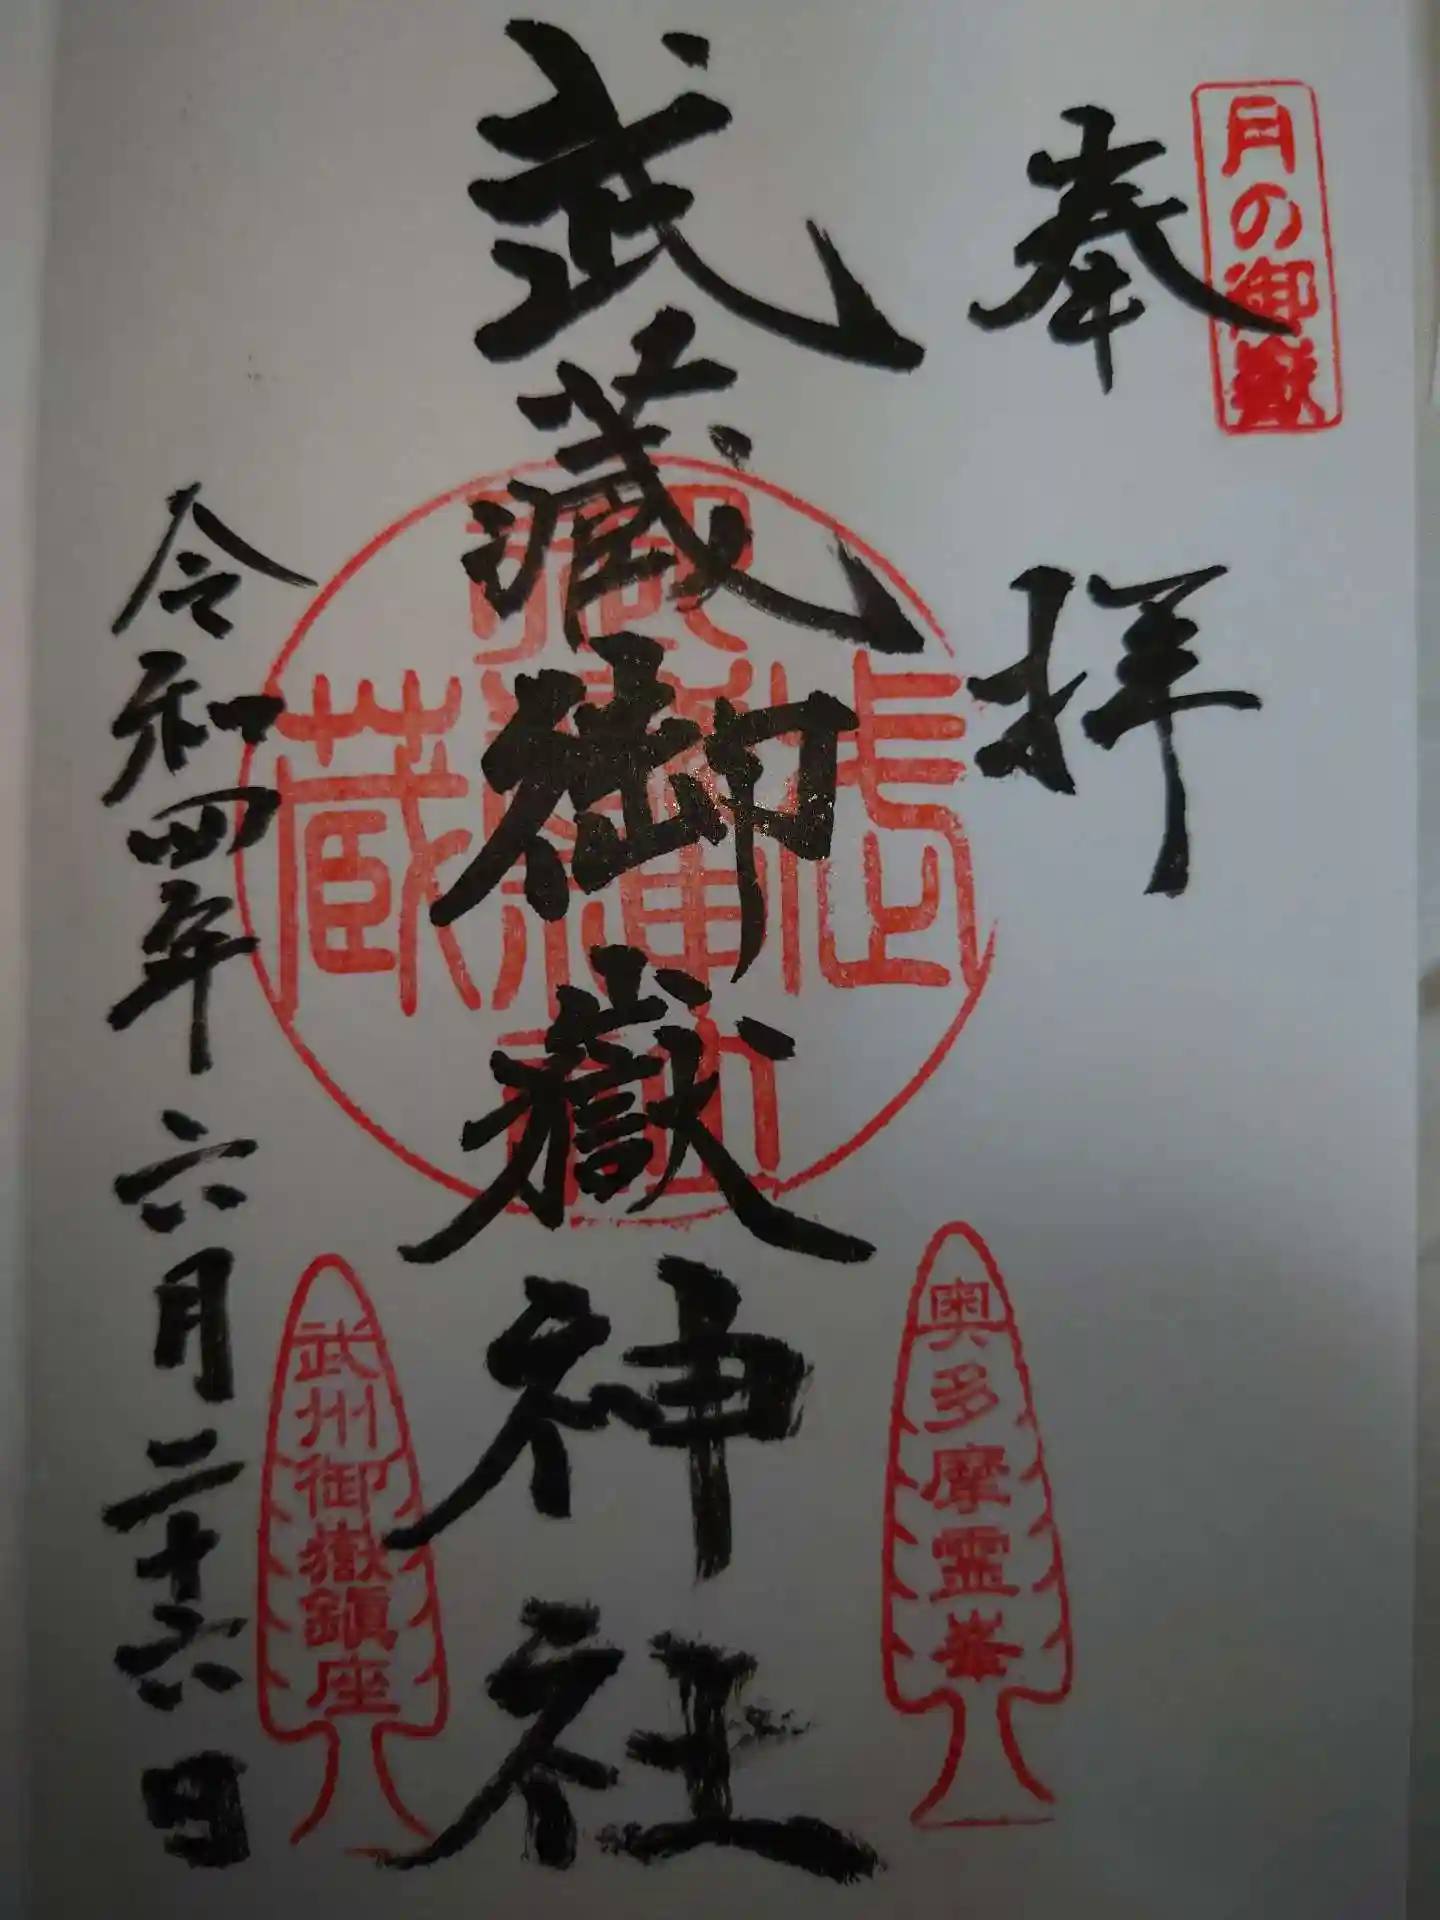 月の御嶽
奉拝
奥多摩霊峯
武蔵御嶽神社
武州御嶽鎮座
令和四年六月二十六日